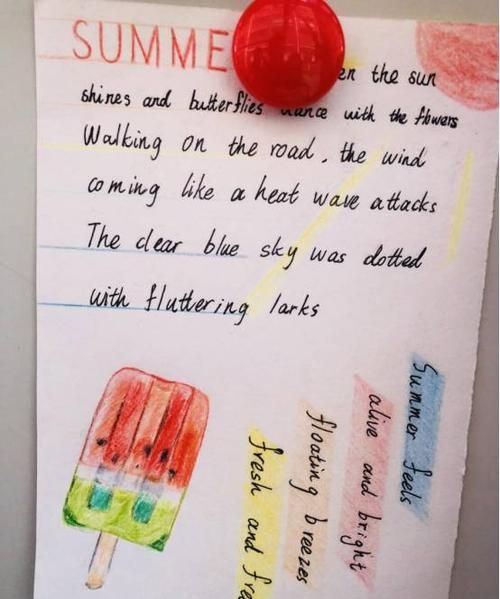 SUMME
the sun
shines and butterflies dance with the flowers
Walking on the road, the wind
coming like a heat wave attacks
The clear blue sky was dotted
with fluttering larks
Summer feels
alive and bright
floating breezes
fresh and